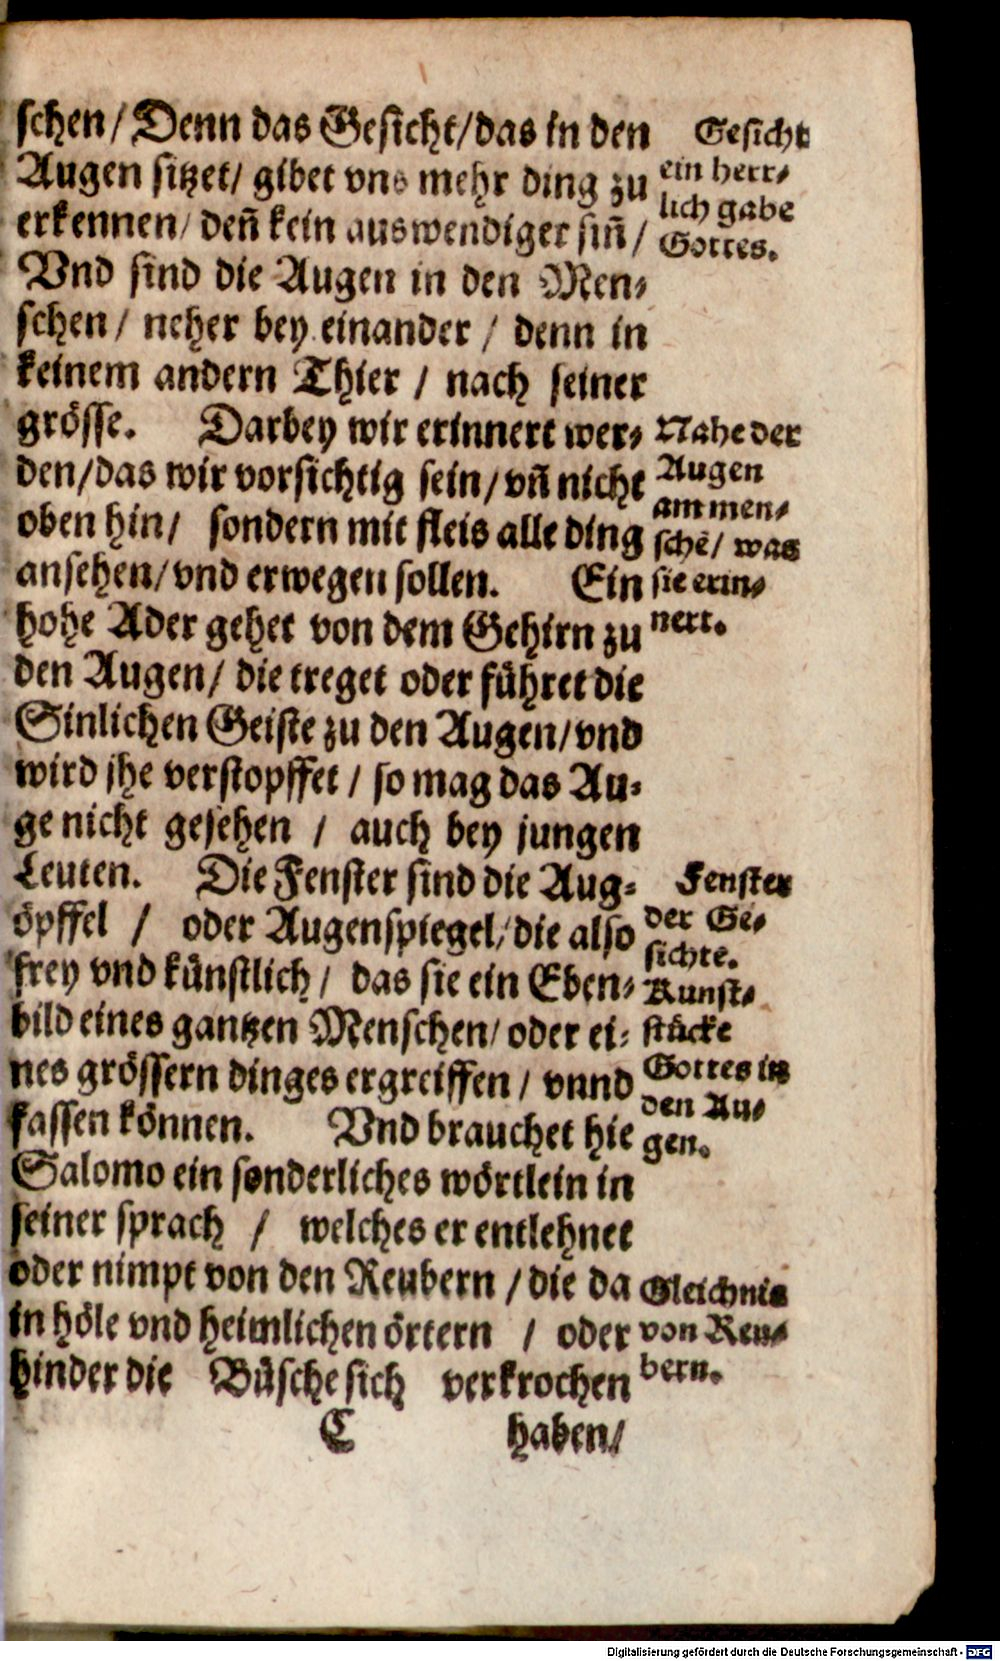 schen/ Denn das Gesicht/das in den
Augen sitzet/ gibet vns mehr ding zu
erkennen/ deñ kein auswendiger siñ/
Vnd sind die Augen in den Men-
schen/ neher bey einander/ denn in
keinem andern Thier/ nach seiner
grösse. Darbey wir erinnert wer-
den/das wir vorsichtig sein/vñ nicht
oben hin/ sondern mit fleis alle ding
ansehen/vnd erwegen sollen. Ein
hohe Ader gehet von dem Gehirn zu
den Augen/ die treget oder führet die
Sinlichen Geiste zu den Augen/vnd
wird jhe verstopffet/ so mag das Au-
ge nicht gesehen/ auch bey jungen
Leuten. Die Fenster sind die Aug-
öpffel/ oder Augenspiegel/die also
frey vnd künstlich/ das sie ein Eben-
bild eines gantzen Menschen/ oder ei-
nes grössern dinges ergreiffen/ vnnd
fassen können. Vnd brauchet hie
Salomo ein sonderliches wörtlein in
seiner sprach/ welches er entlehnet
oder nimpt von den Reubern/die da
in höle vnd heimlichen örtern/ oder
hinder die Büsche sich verkrochen
C haben/
Gesicht
ein herr-
lich gabe
Gottes.
Nahe der
Augen
am men-
schē/ was
sie erin-
nert.
Fenster
der Ge-
sichte.
Kunst-
stücke
Gottes in
den Au-
gen.
Gleichnis
von Reu-
bern.
Digitalisierung gefördert durch die Deutsche Forschungsgemeinschaft - DFG